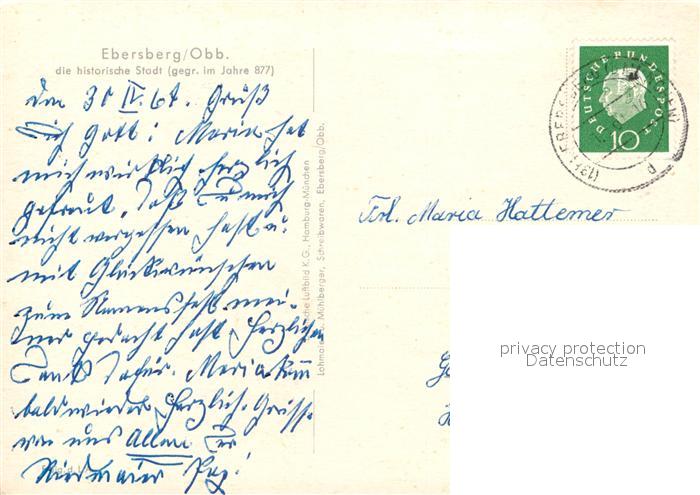 Ebersberg/Obb.
die historische Stadt (gegr. im Jahre 877)
den 30 IV. 67. Grüß
dich Gott! Maria hat
mich wirklich herzlich
gefreut, daß du mich
nicht vergessen hast u.
mit Glückwünschen
zum Namensfest mei-
ner gedacht hast herzlichen
Dank dafür. Maria komm
bald wieder herzlich. Grüsse
von uns Allen der
Niedmaier
Luftbild K.G., Hamburg-München
Mühlberger, Schreibwaren, Ebersberg/Obb.
DEUTSCHE BUNDESPOST
10
EBERSBERG
Frl. Maria Hattemer
privacy protection
Datenschutz